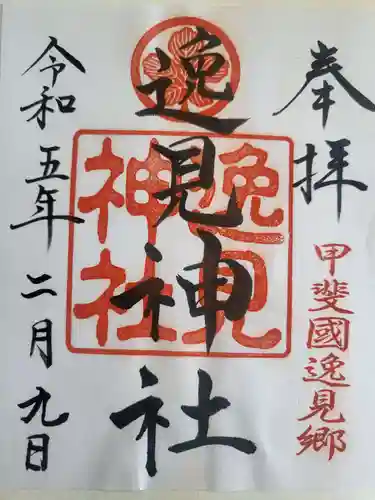 奉拝
甲斐國逸見郷
逸見神社
逸見神社
令和五年二月九日